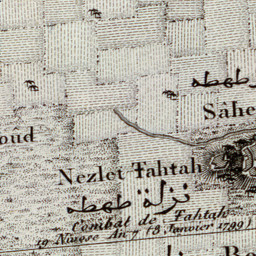 طهطه
Sâhe
oûd
Nezlet Tahtah
نزلة طهطه
Combat de Tahtah
19 Nivose An 7 (8 Janvier 1799)